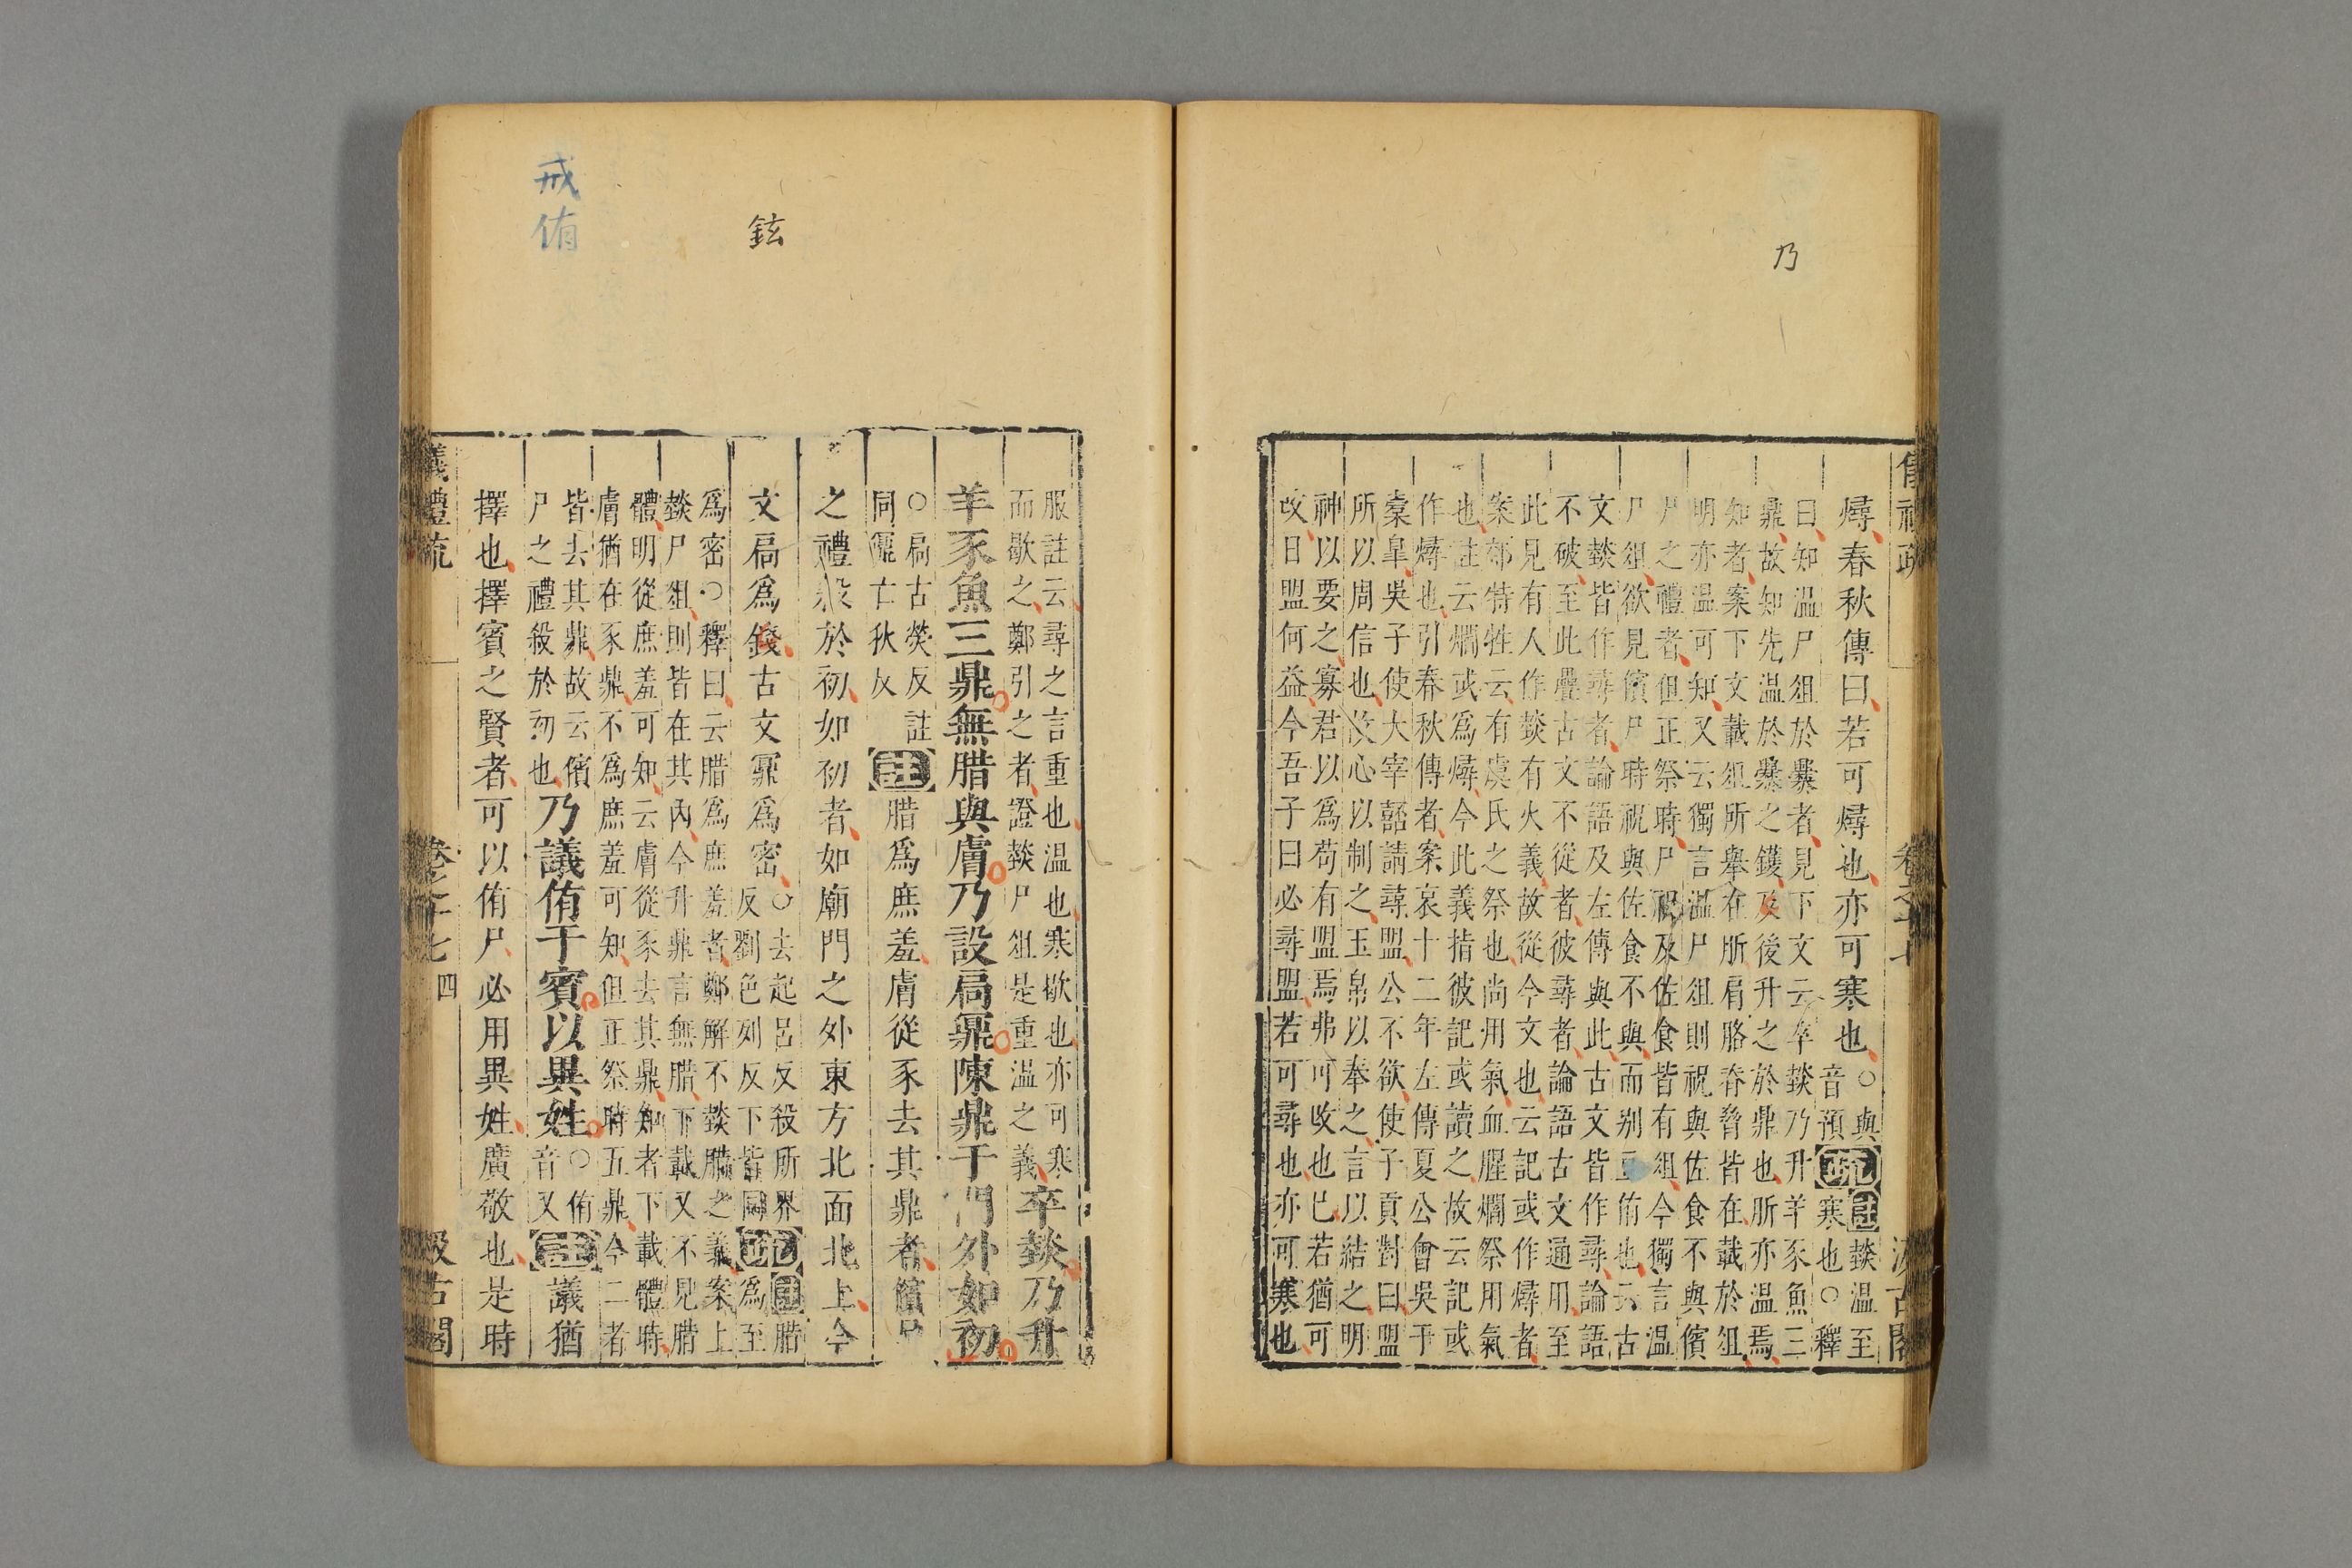 乃
儀禮疏 卷之十七 汲古閣
燖春秋傳曰若可燖也亦可寒也○與音預疏註燅温至寒也○釋
曰知温尸俎於爨者見下文云卒燅乃升羊豕魚三
鼎故知先温於爨之鑊及後升之於鼎也肵亦温焉
知者案下文載俎所舉在肵肩胳脊脅皆在載於俎
明亦温可知又云獨言温尸俎則祝與佐食不與儐
尸之禮者但正祭時尸祝及佐食皆有俎今獨言温
尸俎欲見儐尸時祝與佐食不與而别立侑也云古
文燅皆作尋者論語及左傳與此古文皆作尋論語
不破至此疊古文不從者彼尋者論語古文通用至
此見有人作燅有火義故從今文也云記或作燖者
案郊特牲云有虞氏之祭也尚用氣血腥爓祭用氣
也註云爓或爲燖今此義指彼記或讀之故云記或
作燖也引春秋傳者案哀十二年左傳夏公會吳于
橐皐吳子使大宰嚭請尋盟公不欲使子貢對曰盟
所以周信也故心以制之玉帛以奉之言以結之明
神以要之寡君以爲苟有盟焉弗可改也已若猶可
改日盟何益今吾子曰必尋盟若可尋也亦可寒也
鉉
戒侑
服註云尋之言重也温也寒歇也亦可寒
而歇之鄭引之者證燅尸俎是重温之義
卒燅乃升
羊豕魚三鼎無腊與膚乃設扃鼏陳鼎于門外如初
○扃古熒反註
同鼏亡狄反
註腊爲庶羞膚從豕去其鼎者儐尸
之禮殺於初如初者如廟門之外東方北面北上今
文扃爲鉉古文鼏爲密
○去起呂反殺所界
反劉色列反下皆同
疏註腊
爲至
爲密○釋曰云腊爲庶羞者鄭解不燅腊之義案上
燅尸俎則皆在其內今升鼎言無腊下載又不見腊
體明從庶羞可知云膚從豕去其鼎知者下載體時
膚猶在豕鼎不爲庶羞可知但正祭時五鼎今二者
皆去其鼎故云儐
尸之禮殺於初也
乃議侑于賓以異姓
○侑
音又
註議猶
擇也擇賓之賢者可以侑尸必用異姓廣敬也是時
儀禮疏 卷之十七 四 汲古閣